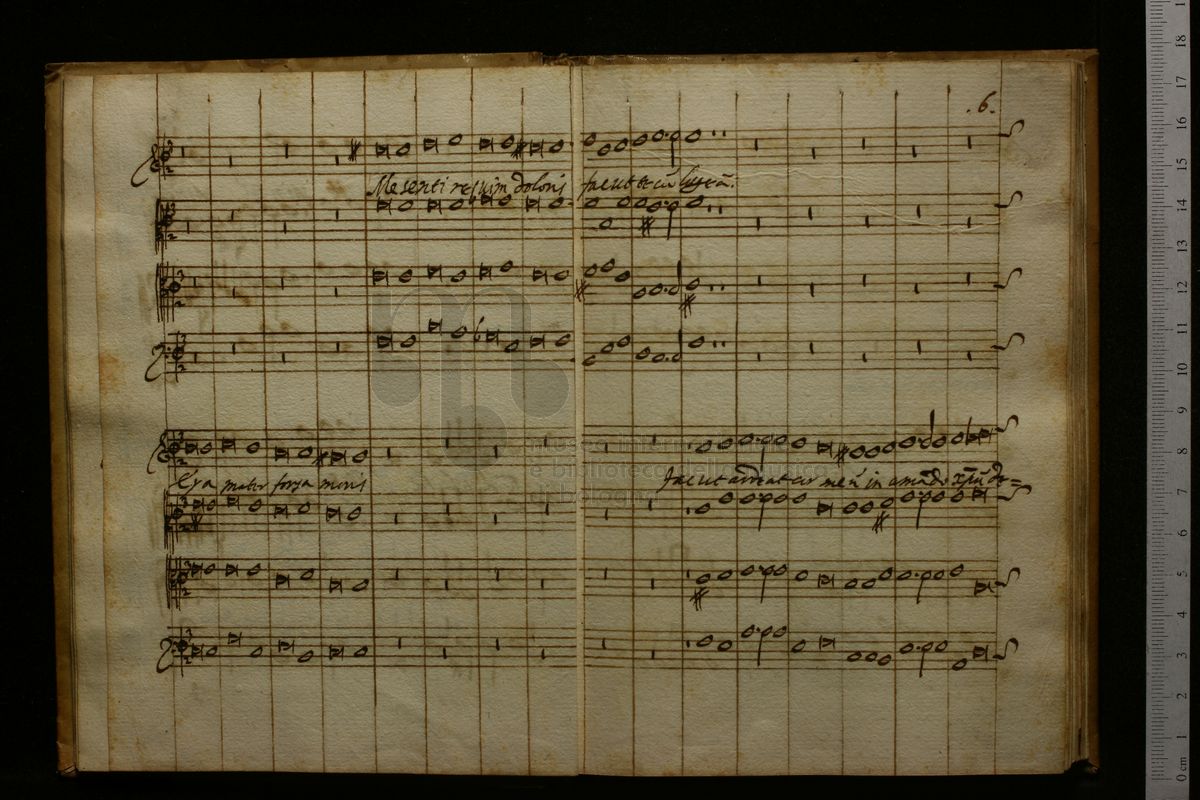 .6.
Me sentire vim doloris fac ut tecū lugeā.
Eya mater fons amoris fac ut ardeat cor meū in amādo xpūm de=
museo internazionale
e biblioteca della musica
di bologna
18
17
16
15
14
13
12
11
10
9
8
7
6
5
4
3
2
1
0 cm